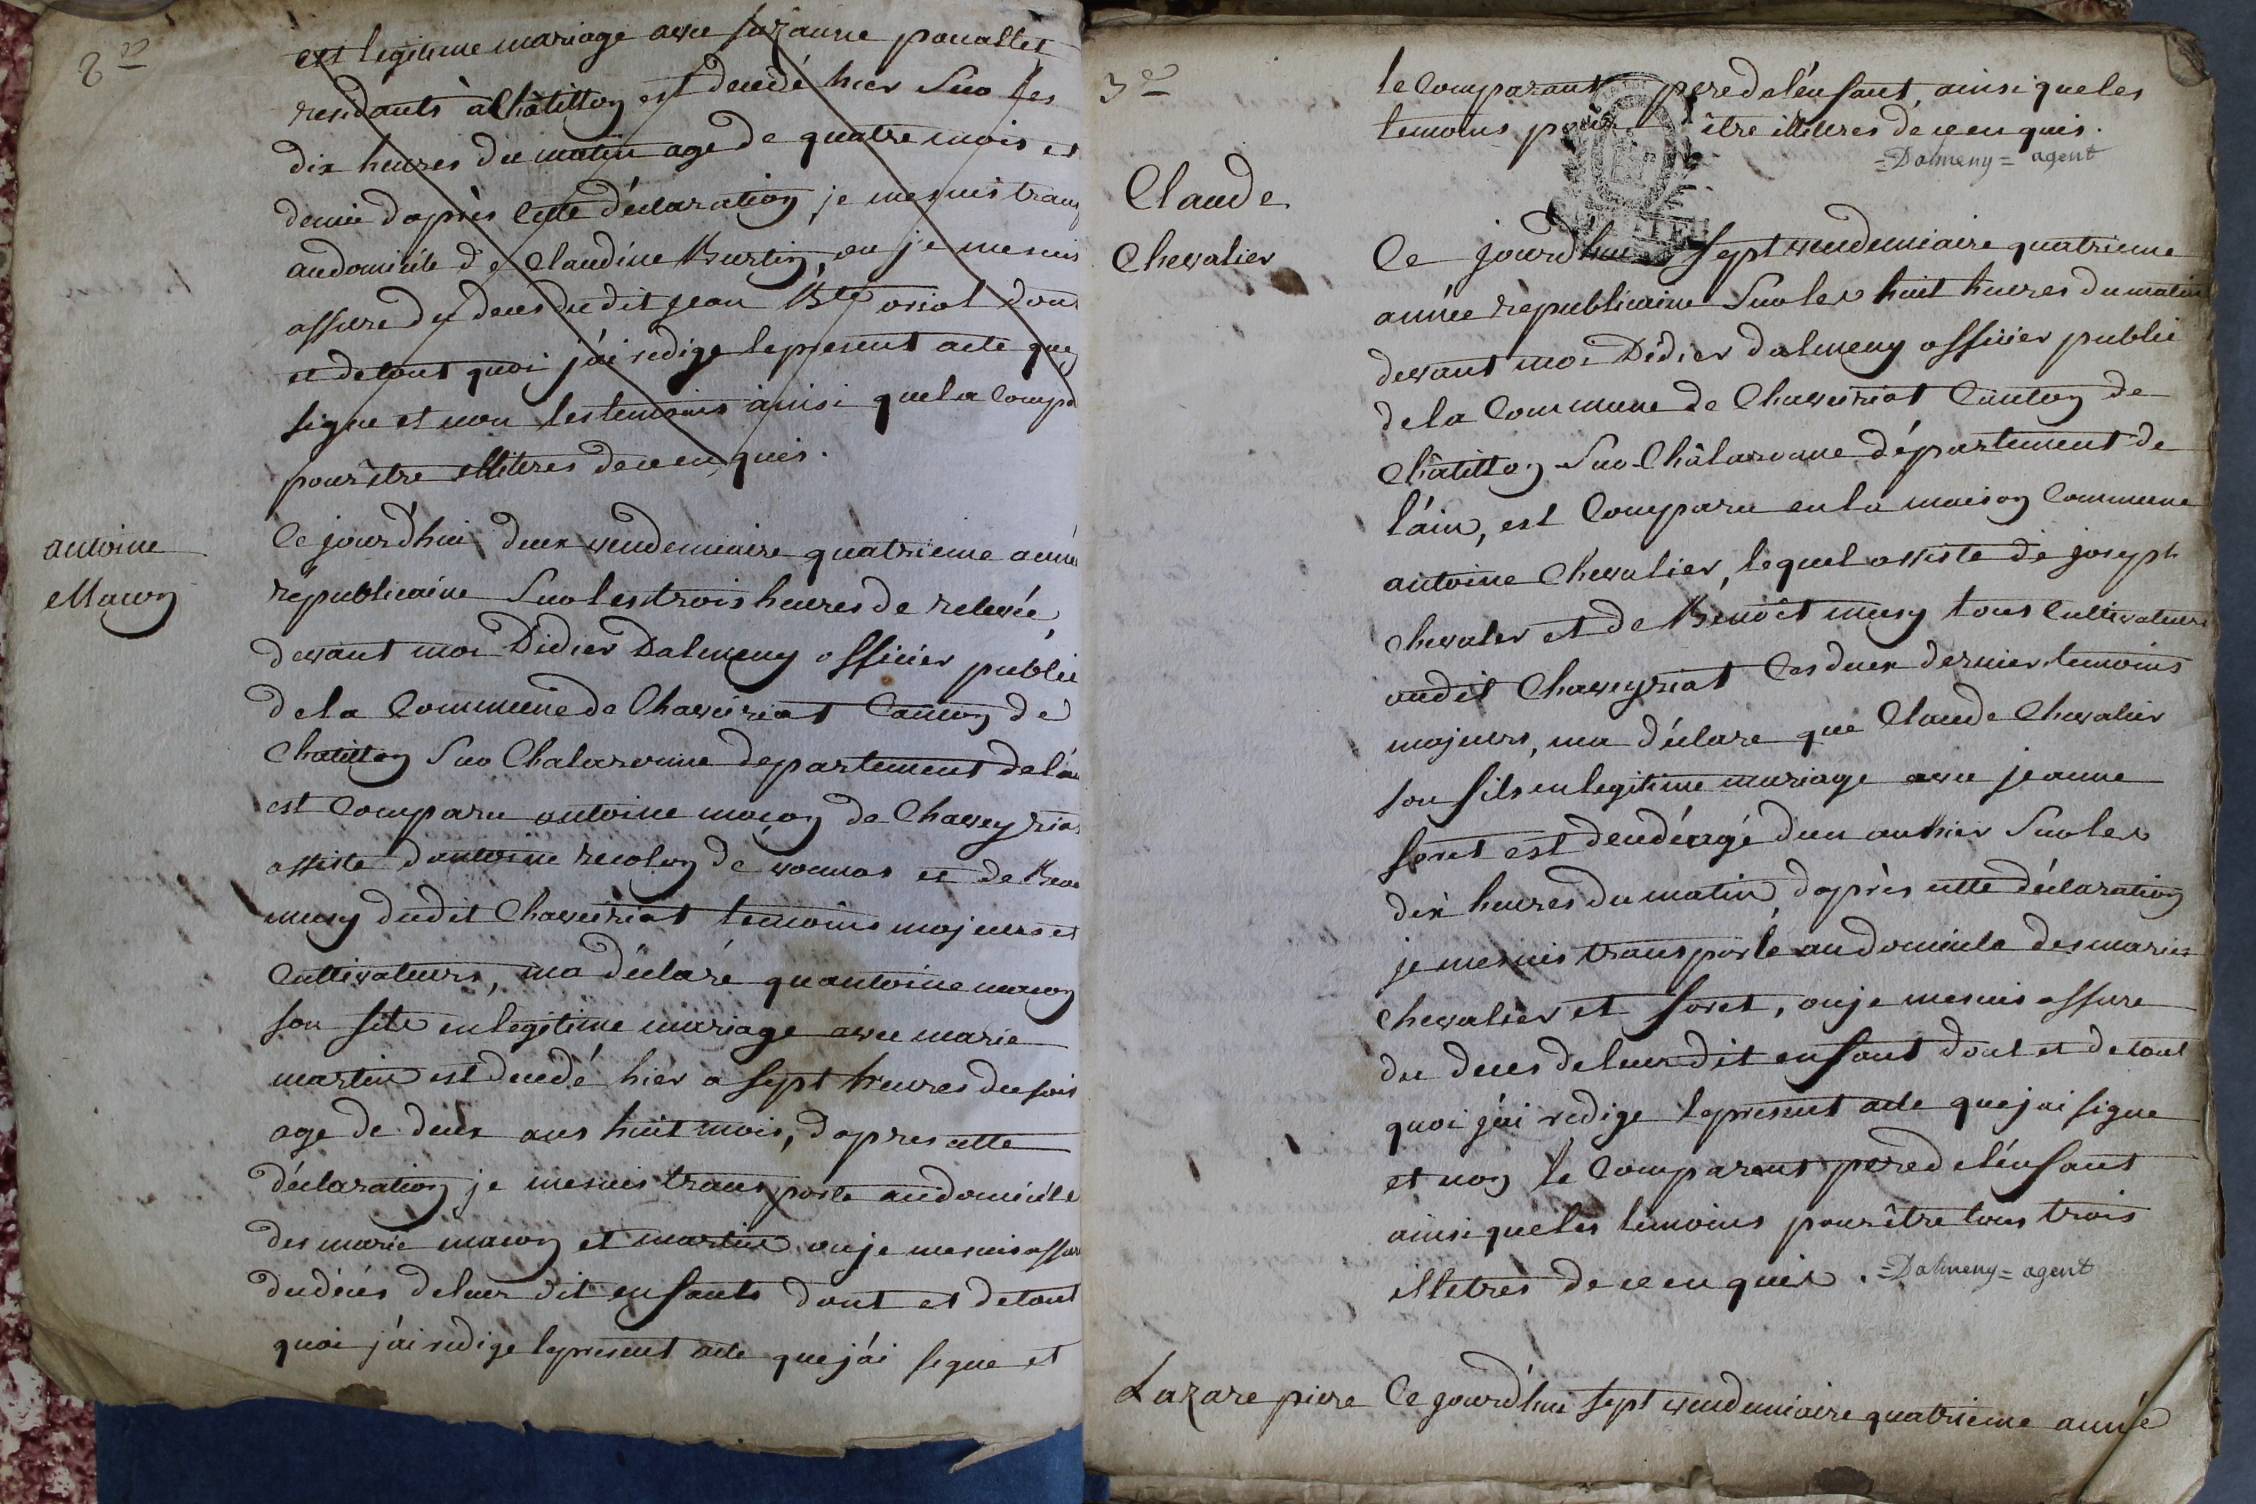 2e
en legitime mariage avec suzanne ponallet
residants à Châtillon est decedé hier Sur les
dix heures du matin age de quatre mois et
demie d'après cette déclaration, je me suis trans
au domicile de Claudine Burtin, ou je me suis
assure du deces du dit jean Bte oriol dont
et de tout quoi j'ai redige le present acte que
signe et non les temoins ainsi que la compa
pour être illitres de ce enquis.
antoine
Macon
Ce jourd'hui deux vendemiaire quatrieme anné
republicaine Sur les trois heures de relevée,
devant moi Didier Dalmeny officier public
de la Commune de Chaveiriat Canton de
Chatillon Sur Chalaronne departement de l'ai
est Comparu antoine maçon de Chaveyriat
assiste d'antoine recolon de vonnas et de Beno
musy dudit Chaveiriat temoins majeurs et
Cultivateurs, m'a déclaré qu'antoine macon
son fils en legitime mariage avec marie
martin est decedé hier a sept heures du soir
age de deux ans huit mois, d'apres cette
déclaration je me suis transporte au domicile
des marié macon et martin ou je me suis assur
du déces de leur dit enfants dont et de tout
quoi j'ai redige le present acte que j'ai signe et
3e
le comparant pere de l'enfant, ainsi que les
temoins pour être illitres de ce enquis.
=Dalmeny= agent
Claude
Chevalier
Ce jourd'hui sept vendemiaire quatrieme
année republicaine Sur les huit heures du matin
devant moi Didier dalmeny officier public
de la Commune de Chaveiriat Canton de
Châtillon Sur Châlaronne département de
l'ain, est Comparu en la maison Commune
antoine Chevalier, lequel assiste de joseph
chevaler et de Benoît musy tous Cultivateurs
audit Chaveyriat Ces deux dernier temoins
majeurs, m'a déclare que Claude Chevalier
son fils en legitime mariage avec jeanne
foret est decedé agé d'un an hier Sur les
dix heures du matin, d'après cette déclaration
je me suis transporté au domicile des maries
chevalier et foret, ou je me suis assure
du deces de leur dit enfant dont et de tout
quoi j'ai redige le present acte que j'ai signe
et non le Comparant pere de l'énfant
ainsi que les temoins pour être tous trois
illetres de ce enquis. =Dalmeny= agent
Lazare piere
Ce jourd'hui sept vendemiaire quatrieme année